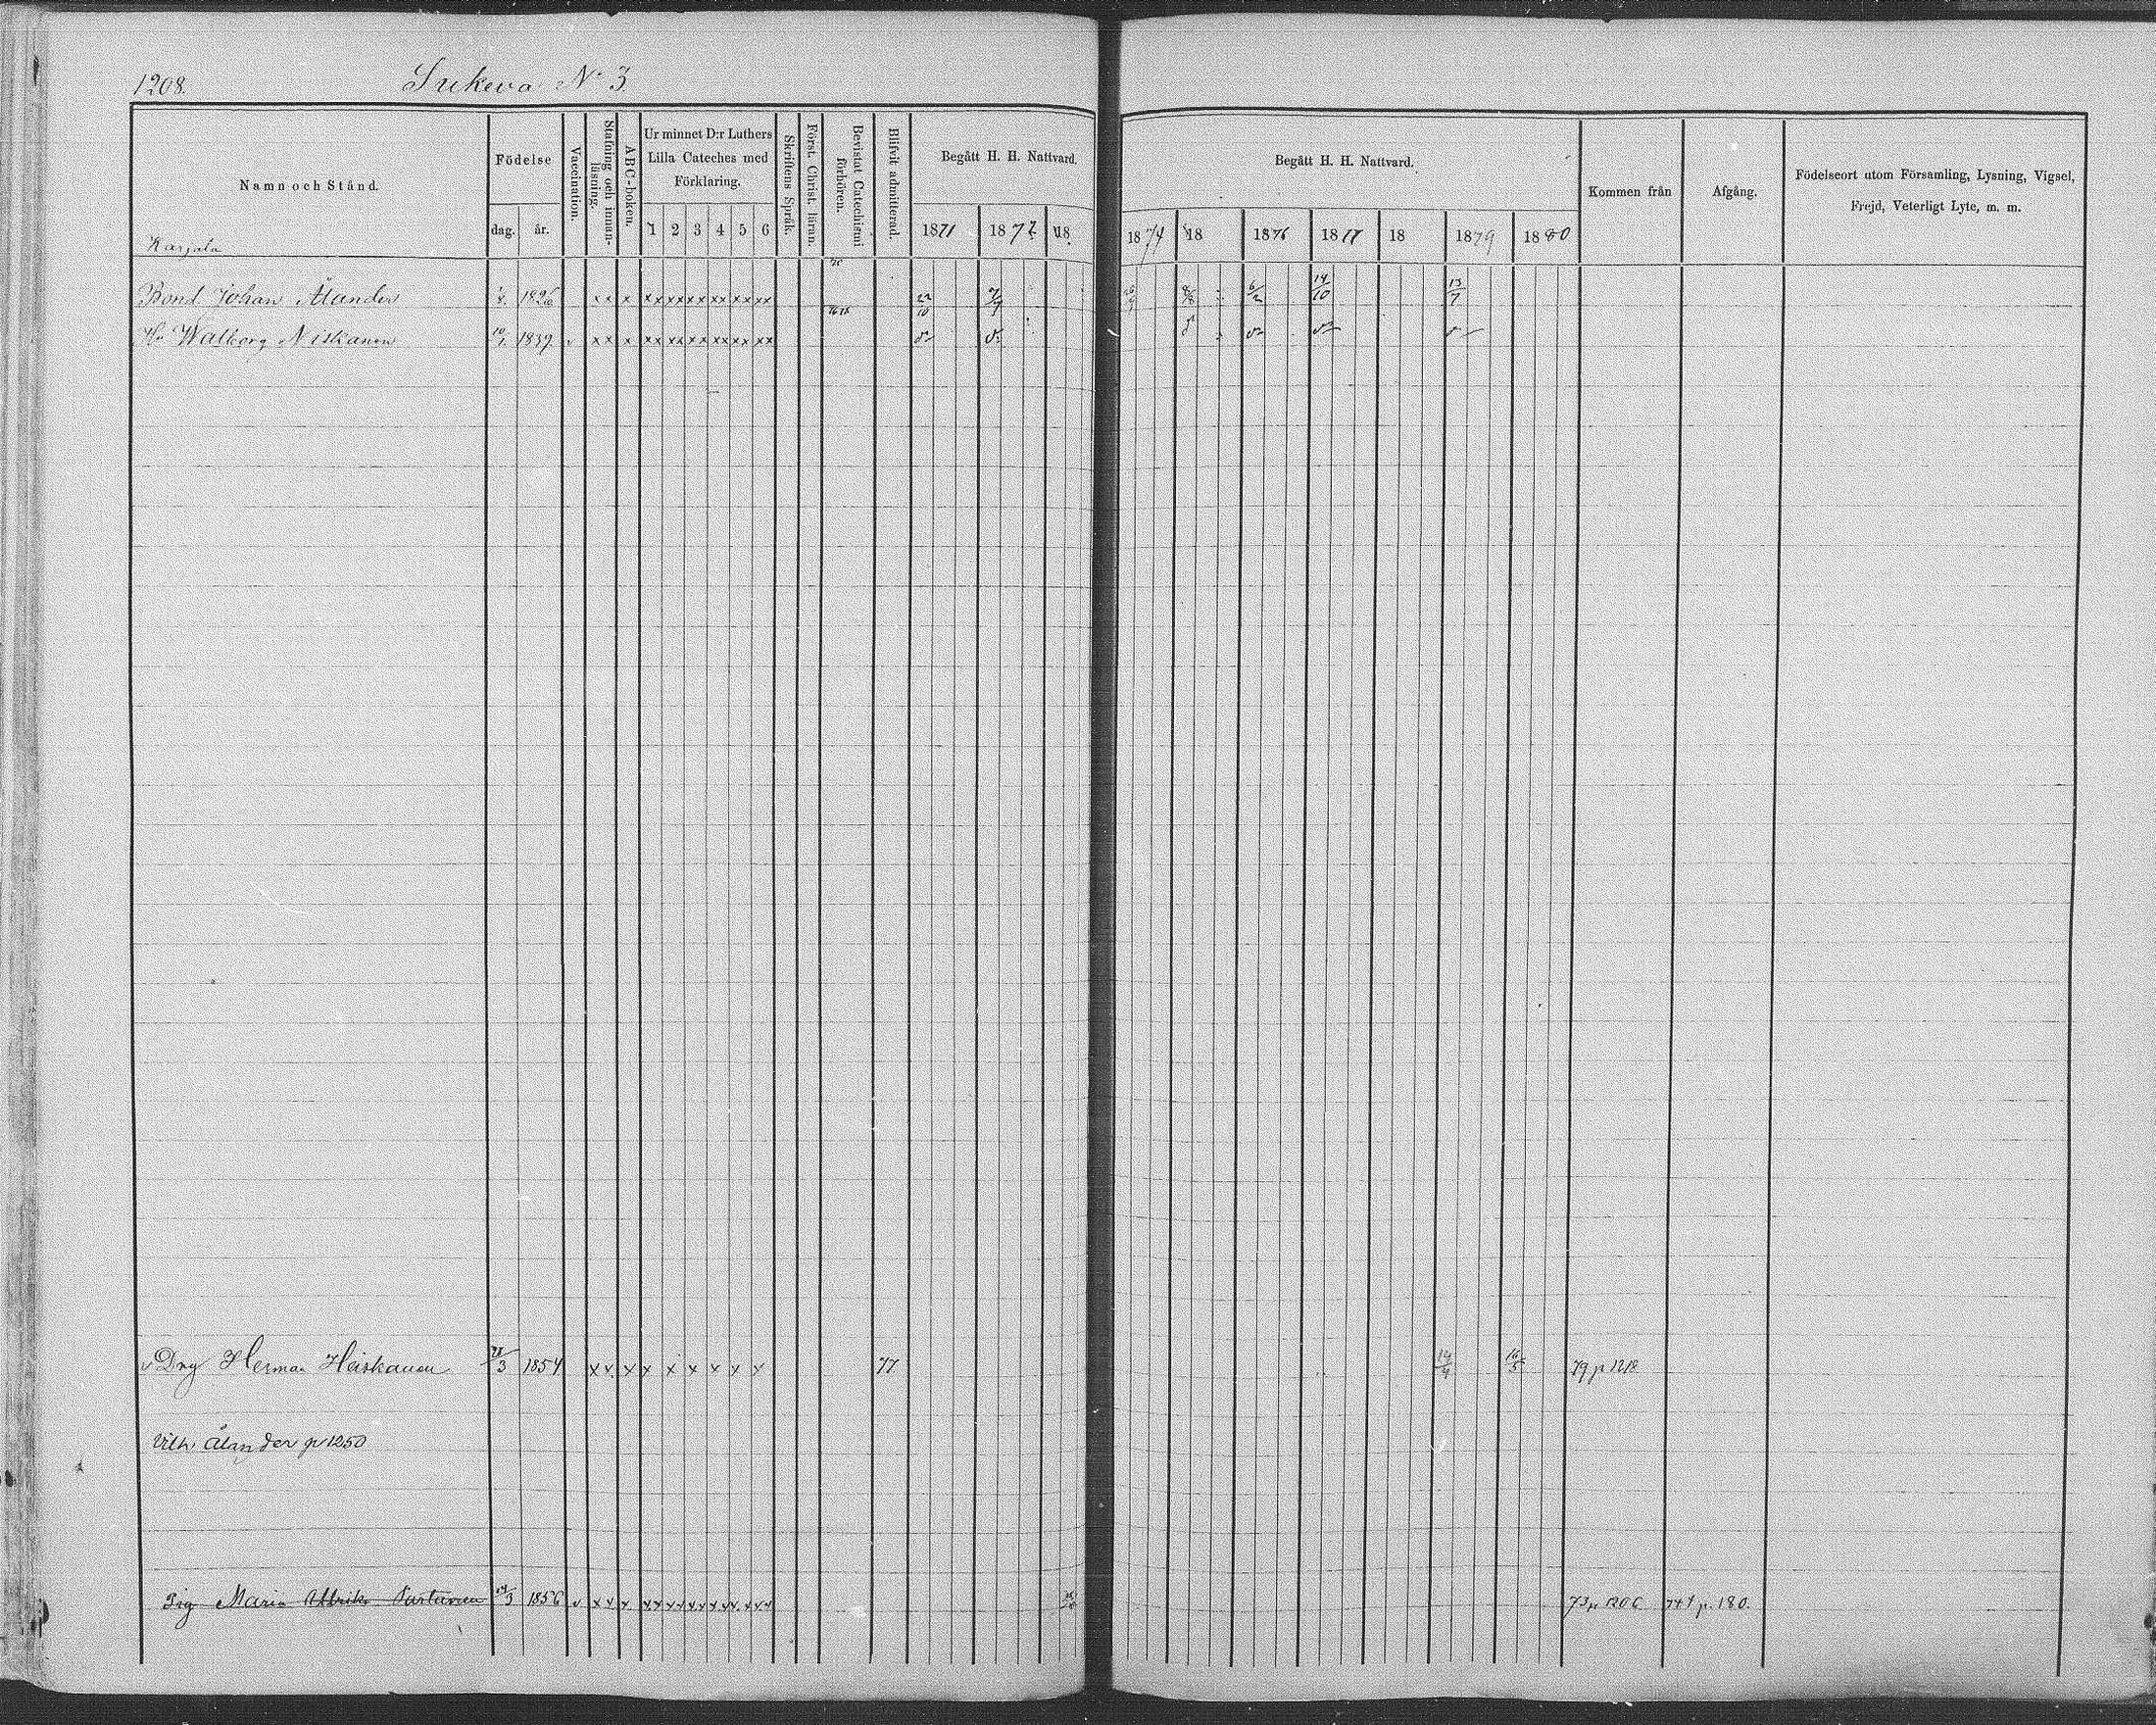 1208. Sukeva No 3.
Namn och Stånd.
Födelse
dag. år.
Vaccination.
Stafning och innan-läsning.
ABC-boken.
Ur minnet D:r Luthers Lilla Cateches med Förklaring.
1 2 3 4 5 6
Skriftens Språk.
Först. Christ. läran.
Bevistat Catechismi förhören.
Blifvit admitterad.
Begått H. H. Nattvard.
1871 1872 18
Begått H. H. Nattvard.
1874 18 1876 1877 18 1879 1880
Kommen från
Afgång.
Födelseort utom Församling, Lysning, Vigsel, Frejd, Veterligt Lyte, m. m.
Karjala
Bond Johan Ålander 1826 x x x x x x x x x x x x x x x 22/10 6/2 14/10 13/7
Hu Walborg Niskanen 10/1 1839. v x x x x x x x x x x x x x x x
v Dng Herman Heiskanen 28/3 1854 x x x x x x x x x 77. 14/4 16/5 79 p 1218
Vilh. Ålander p 1250
Pig Maria Ulrika Partanen 24/3 1856 v x x x x x x x x x x x x x x x 73 p 1206 p. 180.